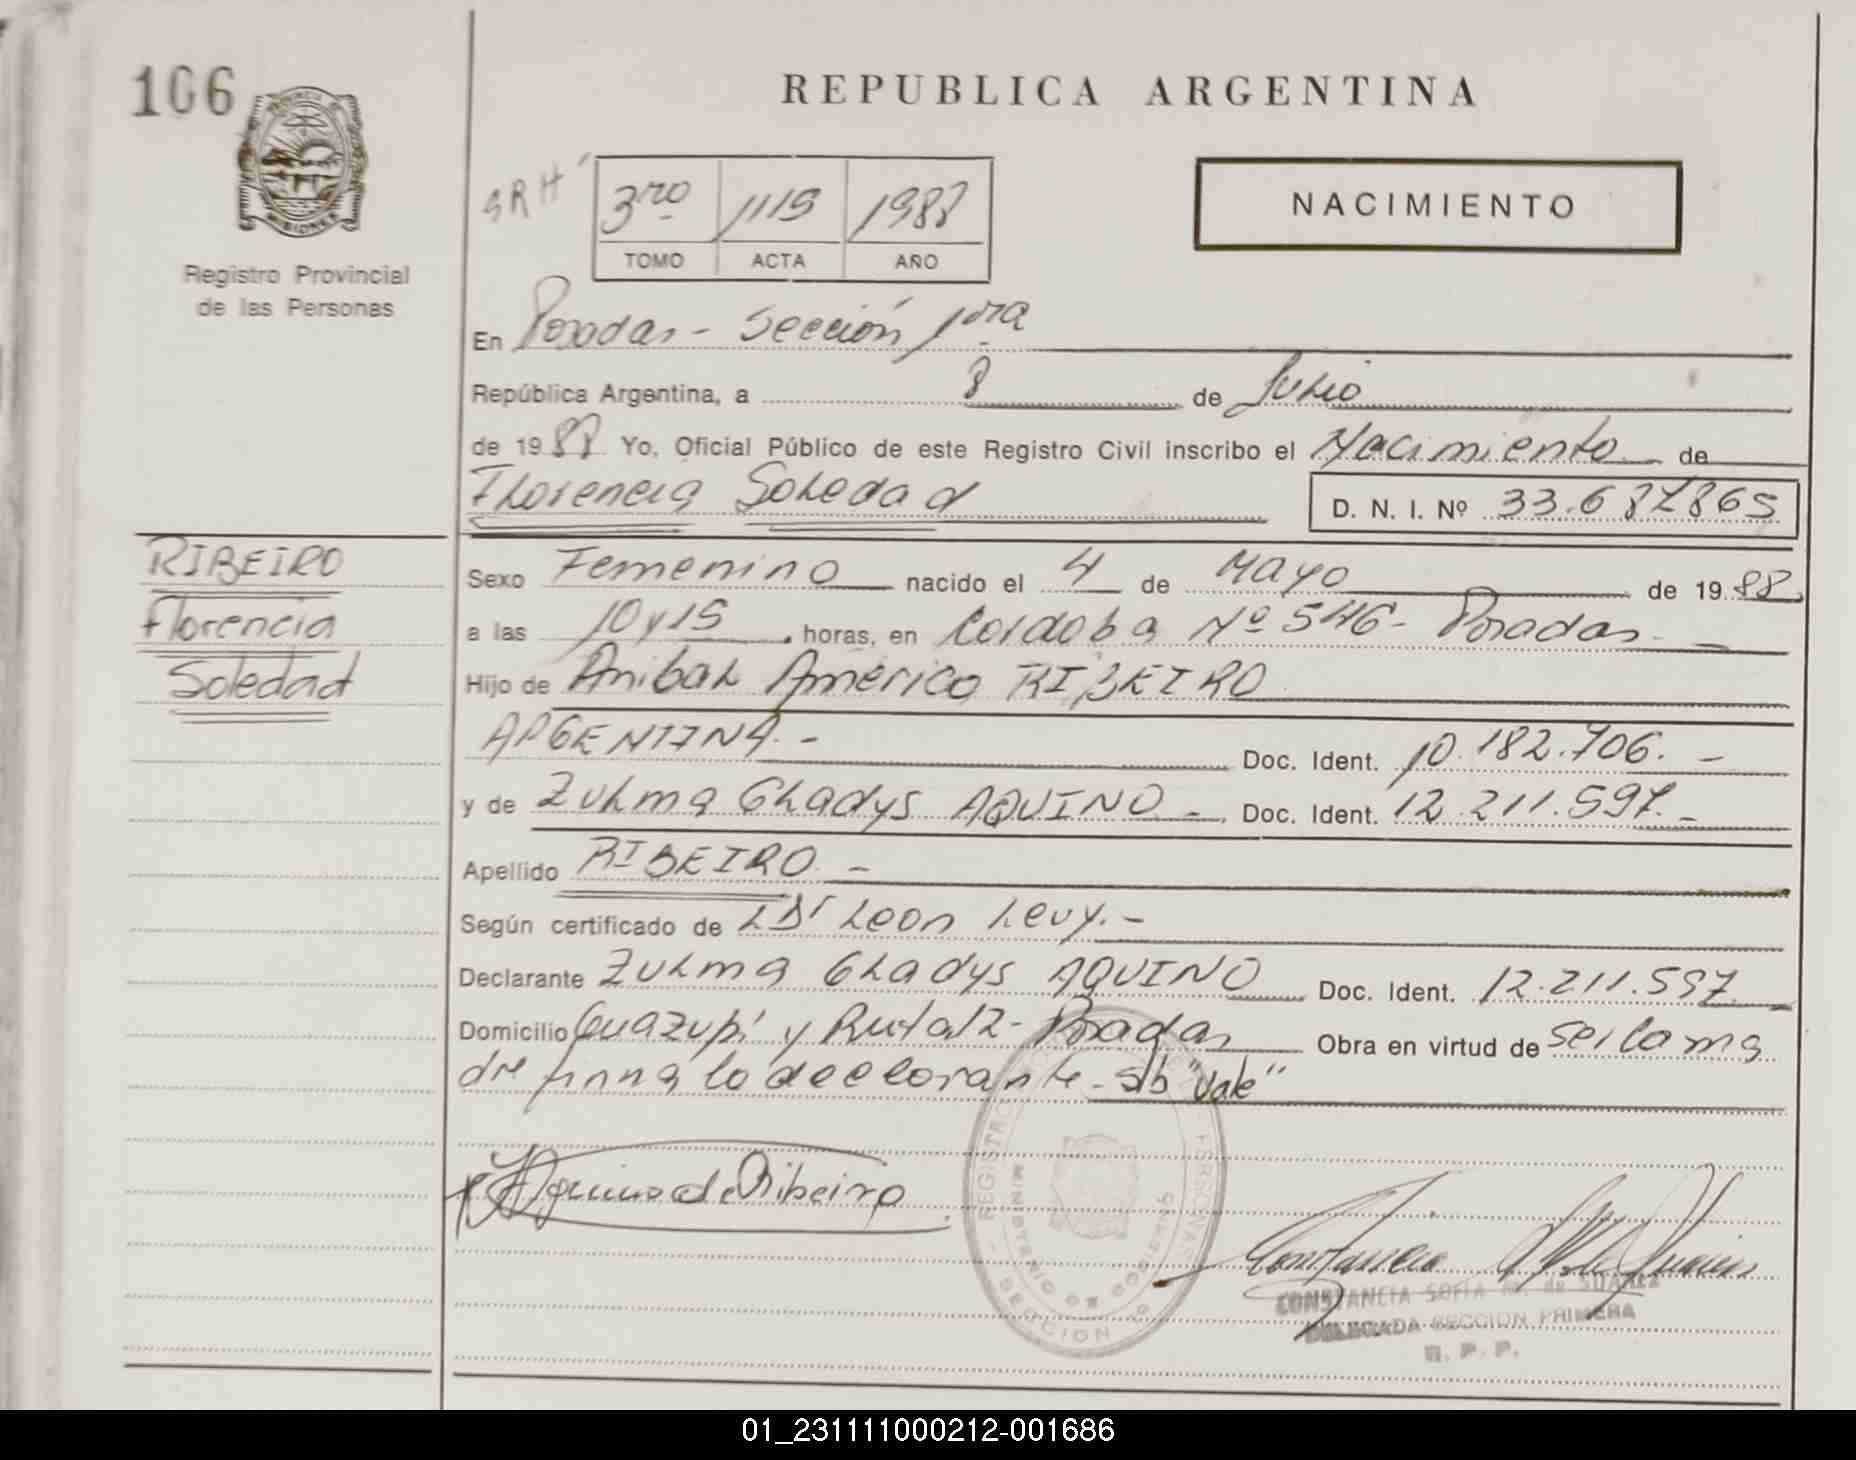 106
REPUBLICA ARGENTINA
SRH
3ro 1119 1988
TOMO ACTA AÑO
NACIMIENTO
Registro Provincial
de las Personas
En Posadas - Sección 1ra
República Argentina, a 8 de Julio
de 1988 Yo, Oficial Público de este Registro Civil inscribo el Nacimiento de
Florencia Soledad D. N. I. Nº 33.687865
RIBEIRO
Florencia
Soledad
Sexo Femenino nacido el 4 de Mayo de 1988
a las 10 y 15 horas, en Cordoba Nº 546 - Posadas.-
Hijo de Anibal Américo RIBEIRO
ARGENTINA.- Doc. Ident. 10.182.706.-
y de Zulma Gladys AQUINO.- Doc. Ident. 12.211.597.-
Apellido RIBEIRO.-
Según certificado de Dr Leon Levy.-
Declarante Zulma Gladys AQUINO Doc. Ident. 12.211.597.-
Domicilio Guazupí y Ruta 12 - Posadas Obra en virtud de ser la ma
dre firma la declarante - s/b "Vale"
Aquino de Ribeiro
REGISTRO PERSONAS
MINISTERIO DE GOBIERNO
SECCION 1º
CONSTANCIA SOFIA de SUAREZ
DELEGADA SECCION PRIMERA
R. P. P.
01_231111000212-001686